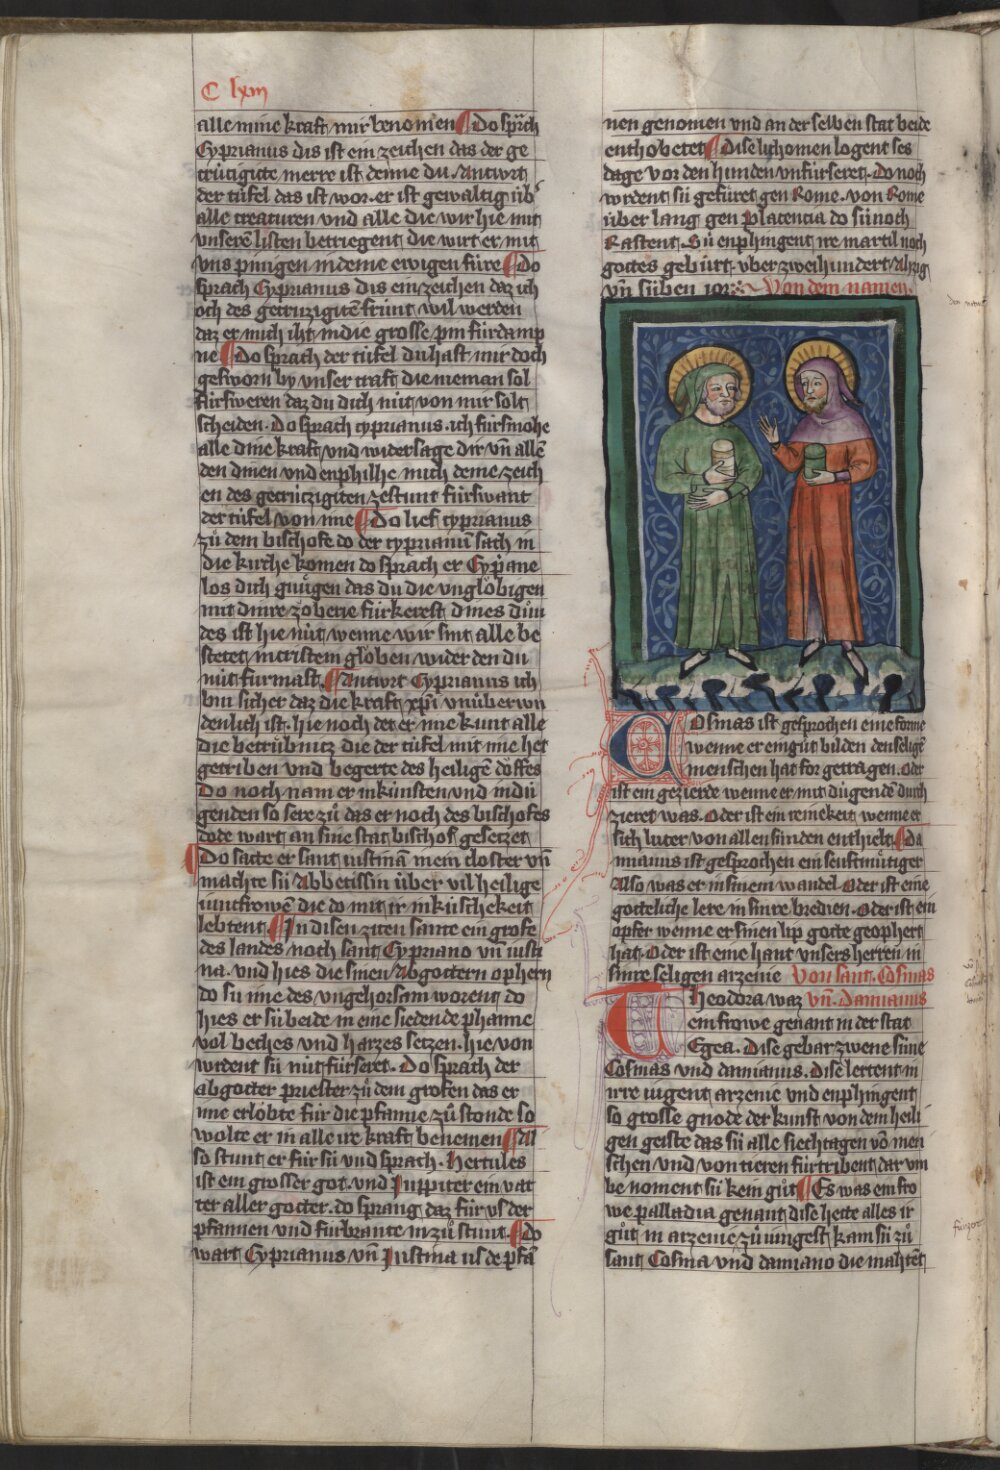 C lxiij
alle mine kraft mir benomen Do sprch
Cyprianus dis ist ein zeichen das der ge
crúcigitte merre ist denne du. Antwrt
der túfel das ist wor. er ist gewaltig úb
alle creaturen vnd alle die wir hie mit
vnserē listen betriegent die wirt er mit
vns pinigen in deme ewigen fúre Do
sprach Cyprianus dis ein zeichen daz ich
och des getruzigitē frúnt wil werden
daz er mich iht in die grosse pin fúrdamp
ne Do sprach der túfel du hast mir doch
gesworn by vnser craft die nieman sol
fúrsweren daz du dich nút von mir solt
scheiden. Do sprach cyprianus. ich fúrsmohe
alle dine kraft vnd widersage dir vn̄ allē
den dinen vnd enphilhe mich deme zeich
en des getrúczigiten zestunt fúrswant
der túfel von ime Do lief cyprianus
zů dem bischofe do der cyprianū sach in
die kirche komen do sprach er Cypane
los dich gnůgen das du die vnglöbigen
mit dinre zoberie fúrkerest dines důn
des ist hie nút wenne wir sint alle be
stetet in cristem glöben wider den du
nút furmast. Antwort Cyprianus ich
bin sicher daz die kraft xp̄i vnúberwn
denlich ist. hie noch det er ime kunt alle
die betrůbnúcz die der túfel mit ime het
getriben vnd begerte des heiligē döffes
Do noch nam er in kúnsten vnd in dú
genden so sere zů das er noch des bischofes
dode wart an sine stat bischof gesetzet
Do satte er sant iustinā in ein closter vn̄
machte sú Abbetissin úber vil heilige
iuncfrowē die do mit ir in kúschekeit
lebtent. In disen ziten sante ein grofe
des landes noch sant Cypriano vn̄ iusti
na. vnd hies die sinen Abgottern ophern
do sú ime des vngehorsam worent do
hies er sú beide in eine siedende phanne
vol beches vnd harzes setzen. hie von
wrdent sú nút fúrseret. Do sprach der
abgotter priester zů dem grofen das er
ime erlöbte fúr die pfanne zů stonde so
wolte er in alle ire kraft benemen Al
so stunt er fúr sú vnd sprach. Hertules
ist ein grosser got. vnd Juppiter ein vat
ter aller gotter. do sprang daz fúr vs der
pfannen vnd fúrbrante in zů stunt. Do
wart Cyprianus vn̄ Justina us de pfā
nen genomen vnd an der selben stat beide
enthobetet Dise lichomen logent ses
dage vor den hunden vnfúrseret. Do noch
wrdent sú gefúret gen Rome. von Rome
úber lang gen placencia do sú noch
Rastent. Sú enphingent ire martil noch
gottes gebúrt. vber zweihundert Ahzig
vn̄ súben ior. Von dem namen.
Cosmas ist gesprochen eine forme
wenne er ein gút bilden den seligē
menschen hat for getragen. oder
ist ein gezierde wenne er mit dúgendē durch
zieret was. Oder ist ein reinekeit wenne er
sich luter von allen súnden enthielt. Da
mianus ist gesprochen ein senftmútiger
Also was er in sinem wandel Oder ist eine
gotteliche lere in sinre bredien. Oder ist ein
opfer wenne er sinen lip gotte geophert
hat. Oder ist eine hant vnsers herren in
sinre seligen arzenie Von sant. Cosmas
Theodora waz vn̄. Damianus
ein frowe genant in der stat
Egea. Dise gebar zwene súne
Cosmas vnd damianus. Dise lertent in
irre iugent arzenie vnd enphingent
so grosse gnode der kunst von dem heili
gen geiste das sú alle siechtagen vō men
schen vnd von tieren fúrtribent dar vm
be noment sú kein gůt Es was ein fro
we palladia genant dise hette alles ir
gůt in arzenie zů umgest kam sú zů
sant Cosma vnd damiano die mahtēt